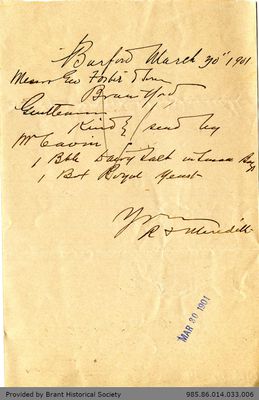 Burford March 20" 1901
Messrs Geo Foster & Son
Brantford
Gentlemen
Kindly send by
Mr Cavin
1 Bbl Dairy Salt in Bags
1 Bx Royal Yeast
Yours
R S Meredith
MAR 20 1901
Provided by Brant Historical Society 985.86.014.033.006